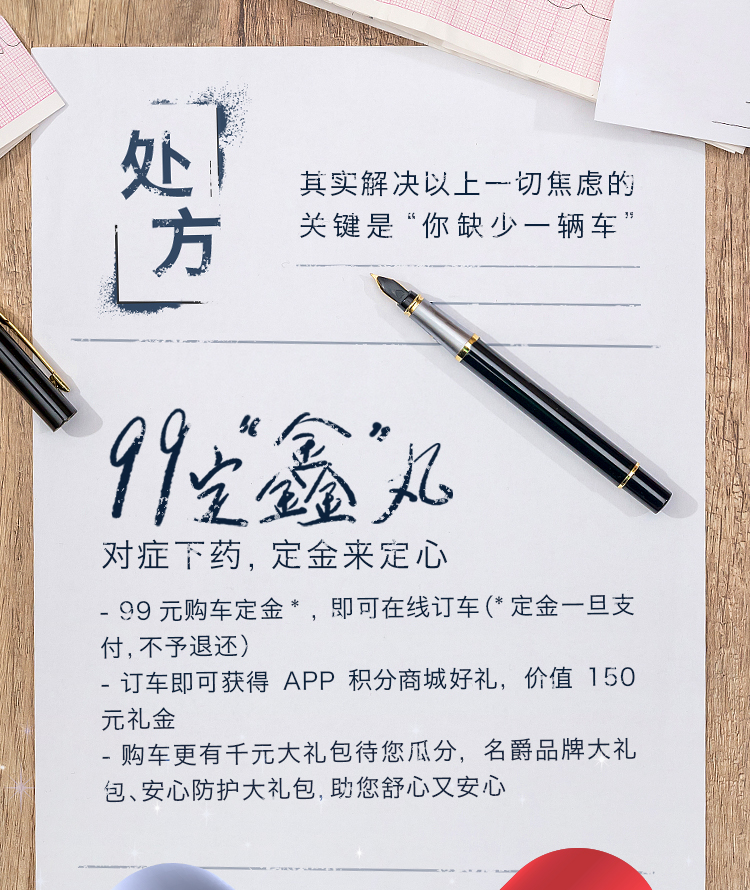 处方
其实解决以上一切焦虑的
关键是“你缺少一辆车”
99定“鑫”丸
对症下药, 定金来定心
- 99 元购车定金*, 即可在线订车(*定金一旦支
付, 不予退还)
- 订车即可获得 APP 积分商城好礼, 价值 150
元礼金
- 购车更有千元大礼包待您瓜分, 名爵品牌大礼
包、安心防护大礼包, 助您舒心又安心